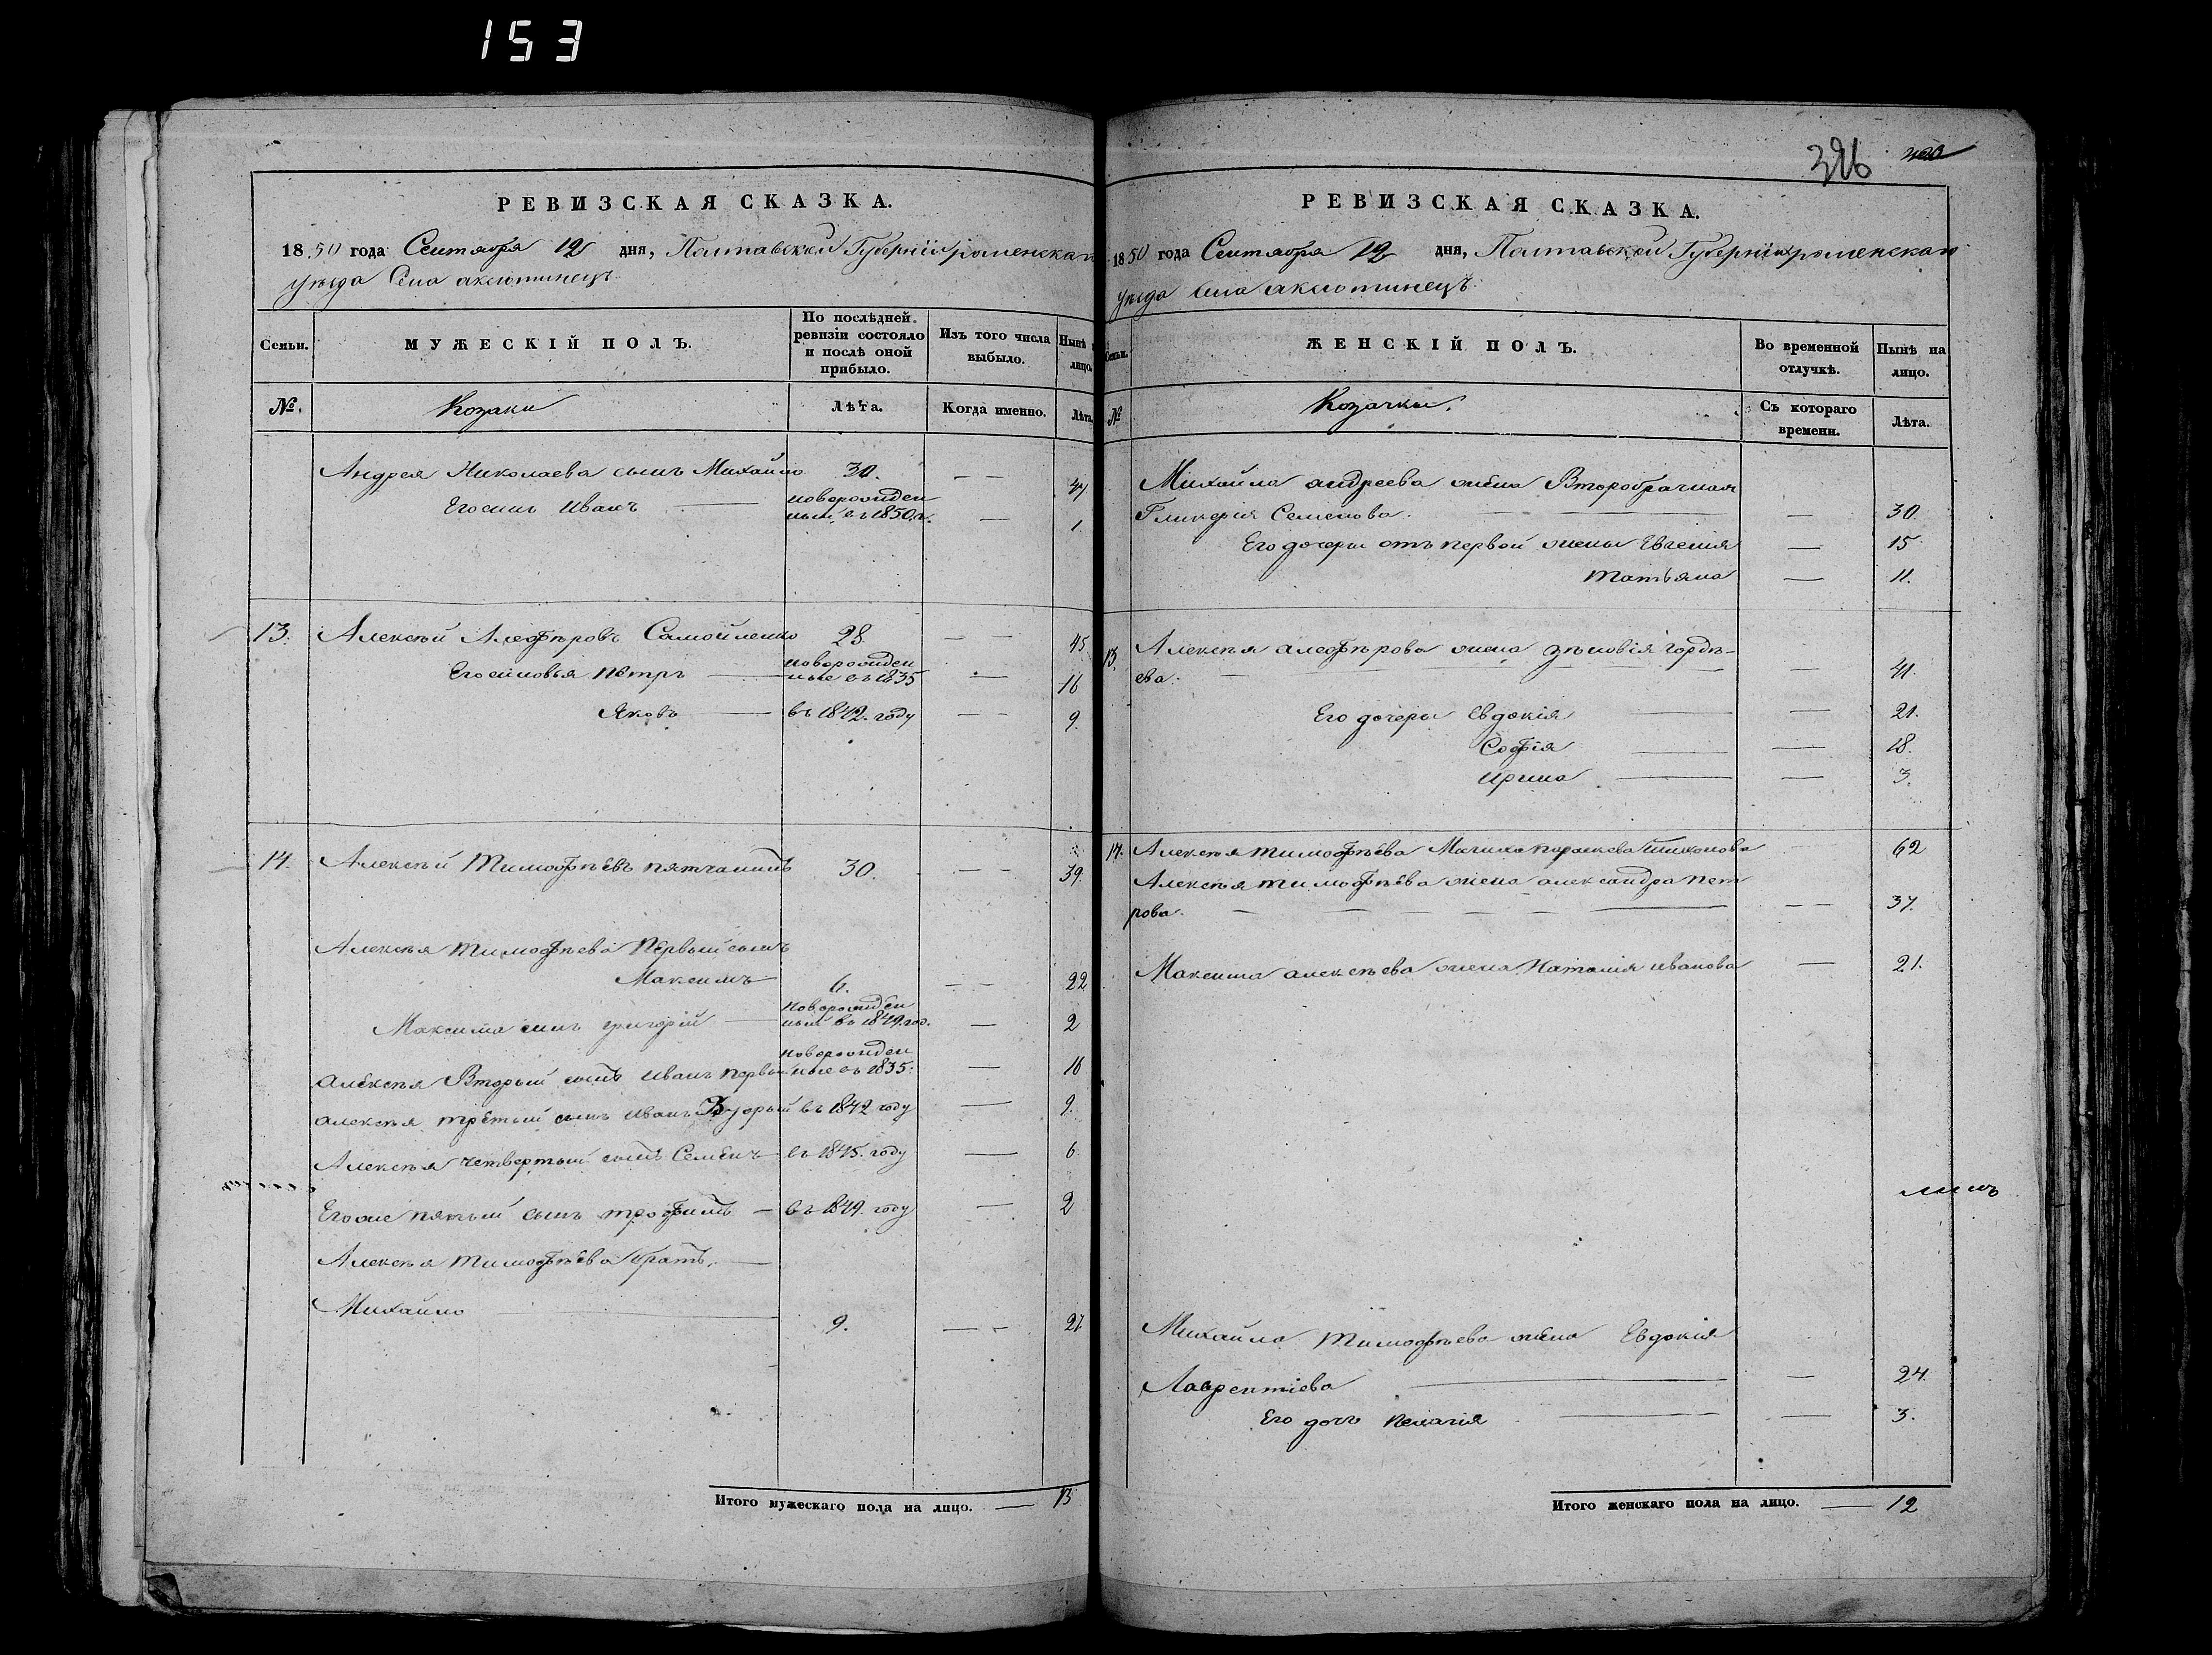 153
РЕВИЗСКАЯ СКАЗКА.
1850 года Сентября 12 дня, Полтавской Губерніи роменскаго
уѣзда Села аксютинецъ
Семьи. МУЖЕСКІЙ ПОЛЪ. По послѣдней ревизіи состояло и послѣ оной прибыло. Изъ того числа выбыло. Нынѣ лицо.
№. Козаки Лѣта. Когда именно. Лѣта
Андрея Николаева сынъ Михайло 30. — —
Его сынъ Иванъ — новорожден
ный въ 1850 г. — 1.
13. Алексѣй Алефѣровъ Самойленко 28 — — 45
Его сыновья Петръ — новорожден
ные въ 1835 — 16
Яковъ — въ 1842. году — — 9.
14. Алексѣй Тимофѣевъ пятчанинъ 30. — — 39.
Алексѣя Тимофѣева Первый сынъ
Максимъ — 6. — — 22
Максима сынъ григорій — новорожден
ный въ 1849. год. — 2
Алексѣя Вторый сынъ Иванъ первый новорожден
ные въ 1835. — 16
Алексѣя третый сынъ Иванъ Вторый въ 1842 году — 9.
Алексѣя четвертый сынъ Семенъ — въ 1845. году — 6
Егоже пятый сынъ трофимъ — въ 1849. году — 2
Алексѣя Тимофѣева братъ, —
Михайло — 9. — — 27.
Итого мужескаго пола на лицо. — 13
326 400
РЕВИЗСКАЯ СКАЗКА.
1850 года Сентября 12 дня, Полтавской Губерніи роменскаго
уѣзда села аксютинецъ
Семьи. ЖЕНСКІЙ ПОЛЪ. Во временной отлучкѣ. Нынѣ на лицо.
№ Козачки. Съ котораго времени. Лѣта.
Михайла андреева жена Второбрачная
Гликерія Семенова. — — 30.
Его дочери отъ первой жены Евгенія — 15
татьяна — 11.
13. Алексѣя алефѣрова жена зѣновія горди-
ева. — — 41.
Его дочери Евдокія — — 21.
Софія — — 18.
Ирина — — 3.
14. Алексѣя тимофѣева Мачиха параскева тихонова 62
Алексѣя тимофѣева жена александра пет
рова. — — 37.
Максима алексѣева жена Наталія иванова — 21.
Михайла Тимофѣева жена Евдокія
Лаврентіева — — 24.
Его дочь пелагія — — 3.
Итого женскаго пола на лицо. — 12